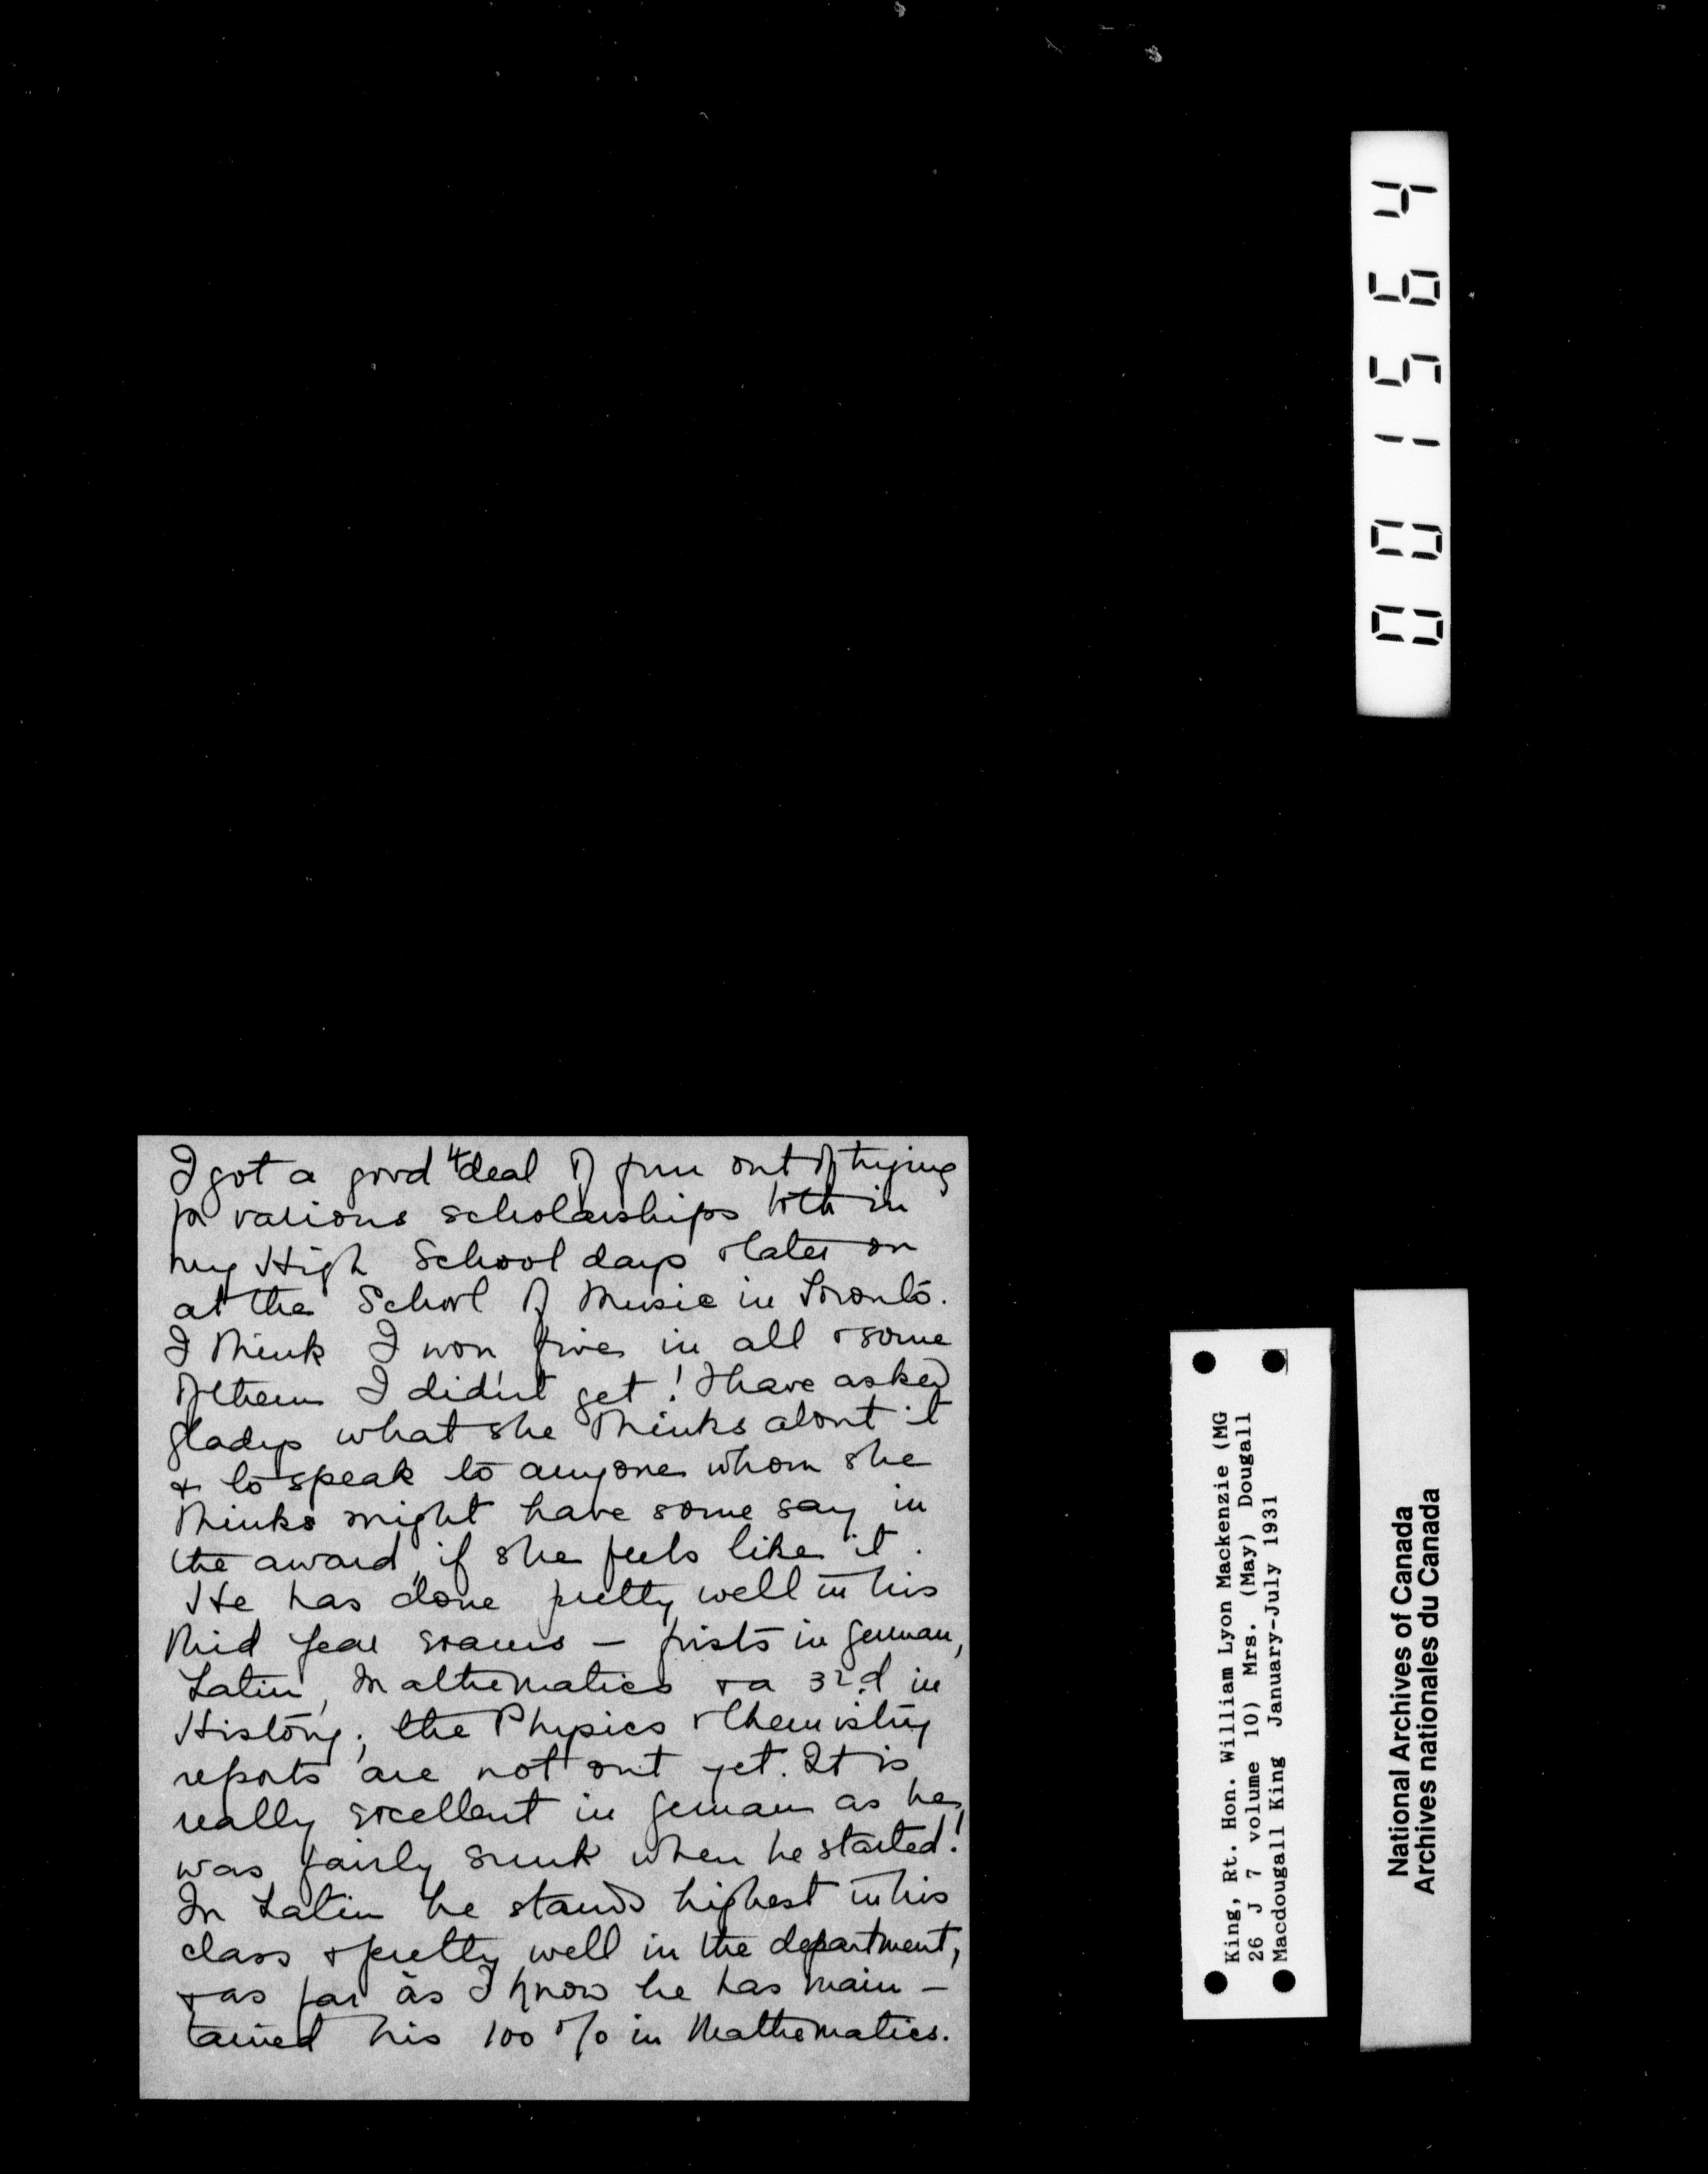 4
I got a good deal of fun out of trying
for various scholarships both in
my High School days & later on
at the School of Music in Toronto.
I think I won five in all & some
of them I didn't get! I have asked
Gladys what she thinks about it
& to speak to anyone whom she
thinks might have some say in
the award, if she feels like it.
He has done pretty well in his
Mid Year exams – firsts in German,
Latin, Mathematics & a 3rd in
History; the Physics & Chemistry
reports are not out yet. It is
really excellent in German as he
was fairly sunk when he started!
In Latin he stands highest in his
class & pretty well in the department,
& as far as I know he has main-
tained his 100 % in Mathematics.
001564
King, Rt. Hon. William Lyon Mackenzie (MG
26 J 7 volume 10) Mrs. (May) Dougall
Macdougall King January-July 1931
National Archives of Canada
Archives nationales du Canada